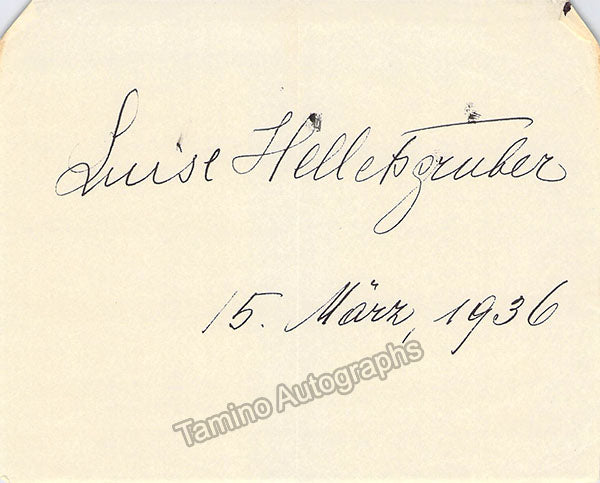 Luise Helletsgruber
15. März, 1936
Tamino Autographs